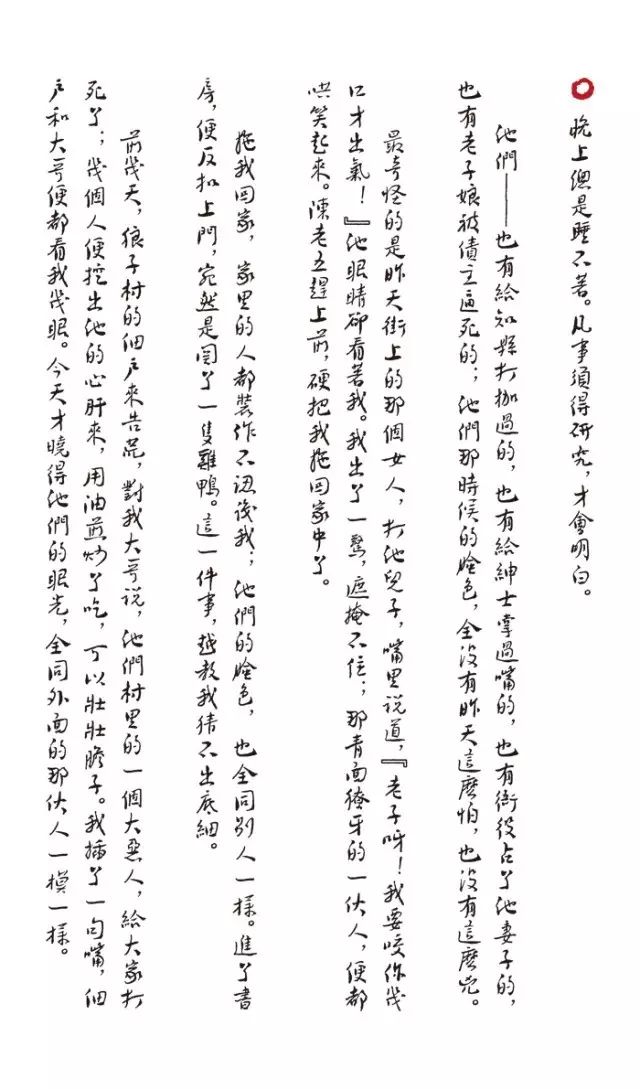 晚上總是睡不著。凡事須得研究,才會明白。
他們——也有給知縣打枷過的,也有給紳士掌過嘴的,也有衙役占了他妻子的,
也有老子娘被債主逼死的;他們那時候的臉色,全沒有昨天這麼怕,也沒有這麼兇。
最奇怪的是昨天街上的那個女人,打他兒子,嘴里說道,『老子呀!我要咬你幾
口才出氣!』他眼睛卻看著我。我出了一驚,遮掩不住;那青面獠牙的一伙人,便都
哄笑起來。陳老五趕上前,硬把我拖回家中了。
拖我回家,家里的人都裝作不認後我;他們的臉色,也全同別人一樣。進了書
房,便反扣上門,宛然是関了一隻雞鴨。這一件事,越教我猜不出底細。
前幾天,狼子村的佃戶來告荒,對我大哥說,他們村里的一個大惡人,給大家打
死了;幾個人便挖出他的心肝來,用油煎炒了吃,可以壯壯膽子。我插了一句嘴,佃
戶和大哥便都看我幾眼。今天才曉得他們的眼光,全同外面的那伙人一模一樣。